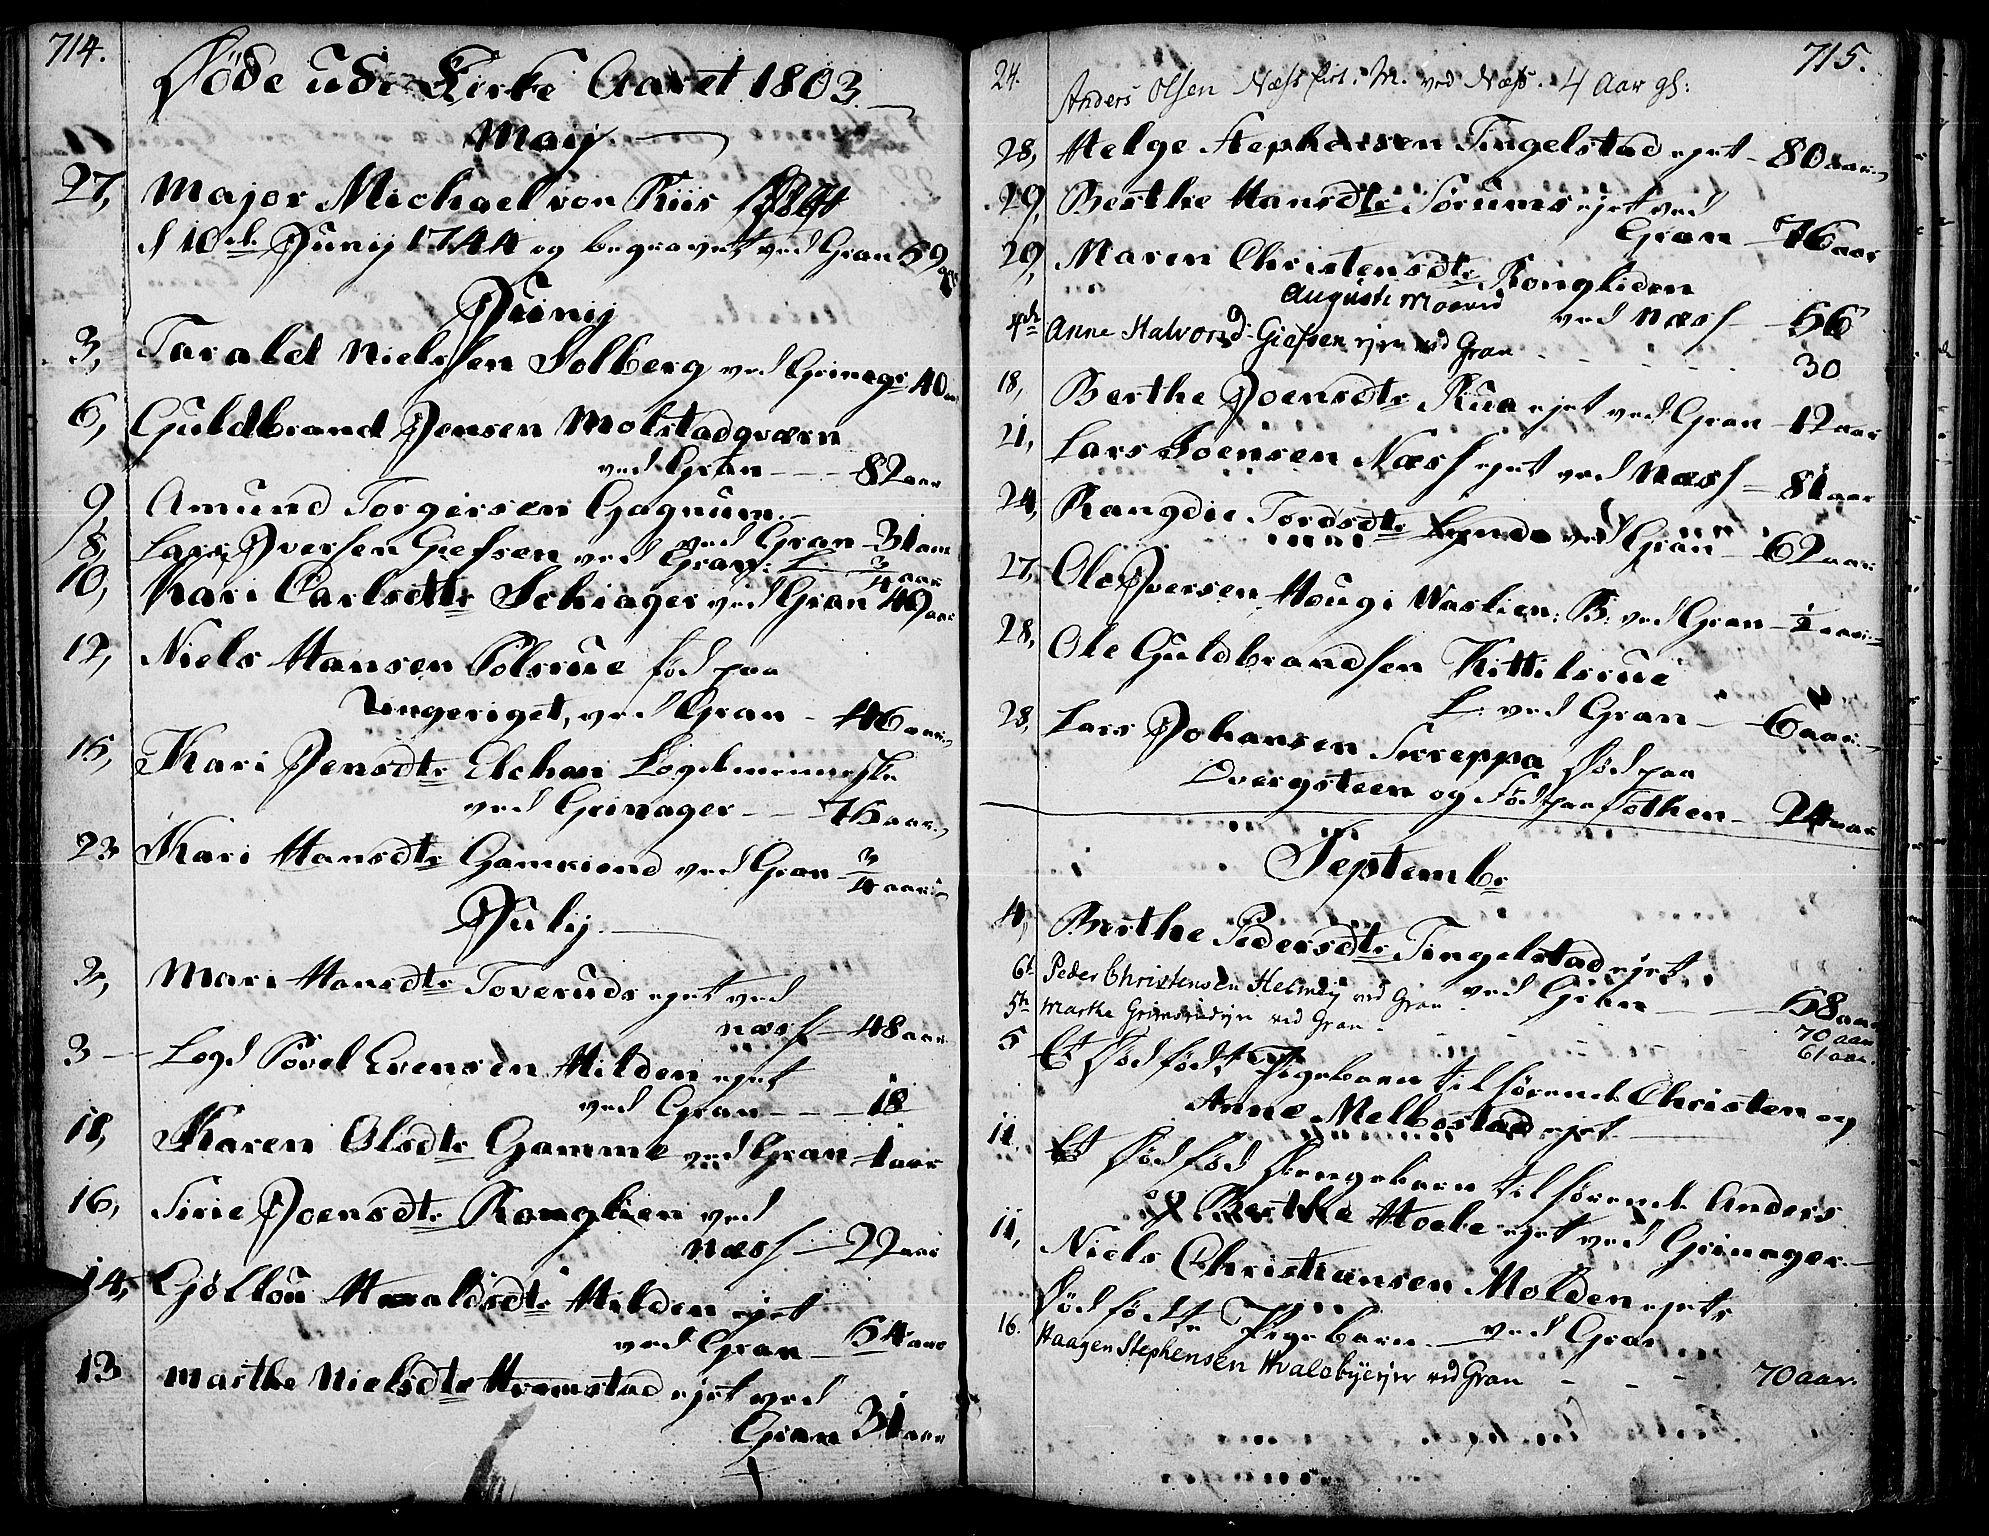 714.
Døde udi Kirke Aaret 1803.
Maij
27, Major Michael von Riis
d 10de Junij 1744 og begravet ved Gran 59 aar
Junij
3, Taralel Nielssen Solberg ved Grinager 40 aar
6, Guldbrand Jensen Molstadqværn
ved Gran - - - 82 aar
9, Amund Torgersen Gagnum
ved Gran - 31 aar
8, Lars Iversen Giefsen ved Gran: L: 3/4 aar
10, Kari Carlsdtr Schiager ved Gran 49 aar
12, Niels Hansen Polsrue fød paa
Ringeriget, ved Gran - 46 aar
15, Kari Jensdtr Elchen Logdemenneske
ved Grinager - - 76 aar
23 Kari Hansdtr Gamkiend ved Gran - 3/4 aar
Julij
2, Mari Hansdtr Toveruds ejet ved
Næss - 48 aar
3 - Logd Povel Evensen Hilden ejet
ved Gran - - - 18
11, Karen Olsdtr Gamme ved Gran 1 aar
16, Sirie Joensdtr Ronglien ved
Næss - 22 aar
14, Gjøllou Haraldsdtr Hilden ejet
ved Gran - 54 aar
13 Marthe Nielsdtr Hvamstad ejet ved
Gran 31 aar
715.
24. Anders Olsen Næss ved Næss. 4 Aar gl:
28, Helge Stephensen Tingelstad ejet - 80 aar
29, Berthe Hansdtr Sørums ejet ved
Gran - 76 aar
29, Maren Christensdtr Rongliden
ved Næss - 56
Augusti Maaned
4de Anne Halvorsd: Giefsen ejen ved Gran - - - 30
18, Berthe Joensdtr Rua ejet ved Gran - 12 aar
21, Lars Joensen Næss ejet ved Næss - 81 aar
24, Rangdie Tordsdtr Lynde ved Gran - 62 aar
27, Ole Iversen Hougs Waslien: B: ved Gran - 1/2 aar
28, Ole Guldbrandsen Kittilsrue
L: ved Gran - 6 aar
28, Lars Johansen Skreppa Død paa
Dvergsteen og Fød paa Tothen - 24 aar
Septembr
4, Berthe Pedersdtr Tingelstad ejet
ved Gran - 58 aar
6t Peder Christensen Helmey ved Gran - - - 70 aar
5te Marthe Grimsrudejn ved Gran - - - 61 aar
5 Et Død født Pigebarn tilhørende Christen og
Anne Melbostad ejet
11 Et Død fød Drengebarn tilhørende Anders
og Berthe Hoele ejet ved Grinager
11, Niels Christiansen Molden ejets
Død fødte Pigebarn ved Gran
16. Haagen Stephensen Hvalebyeejer ved Gran - - - 70 aar.